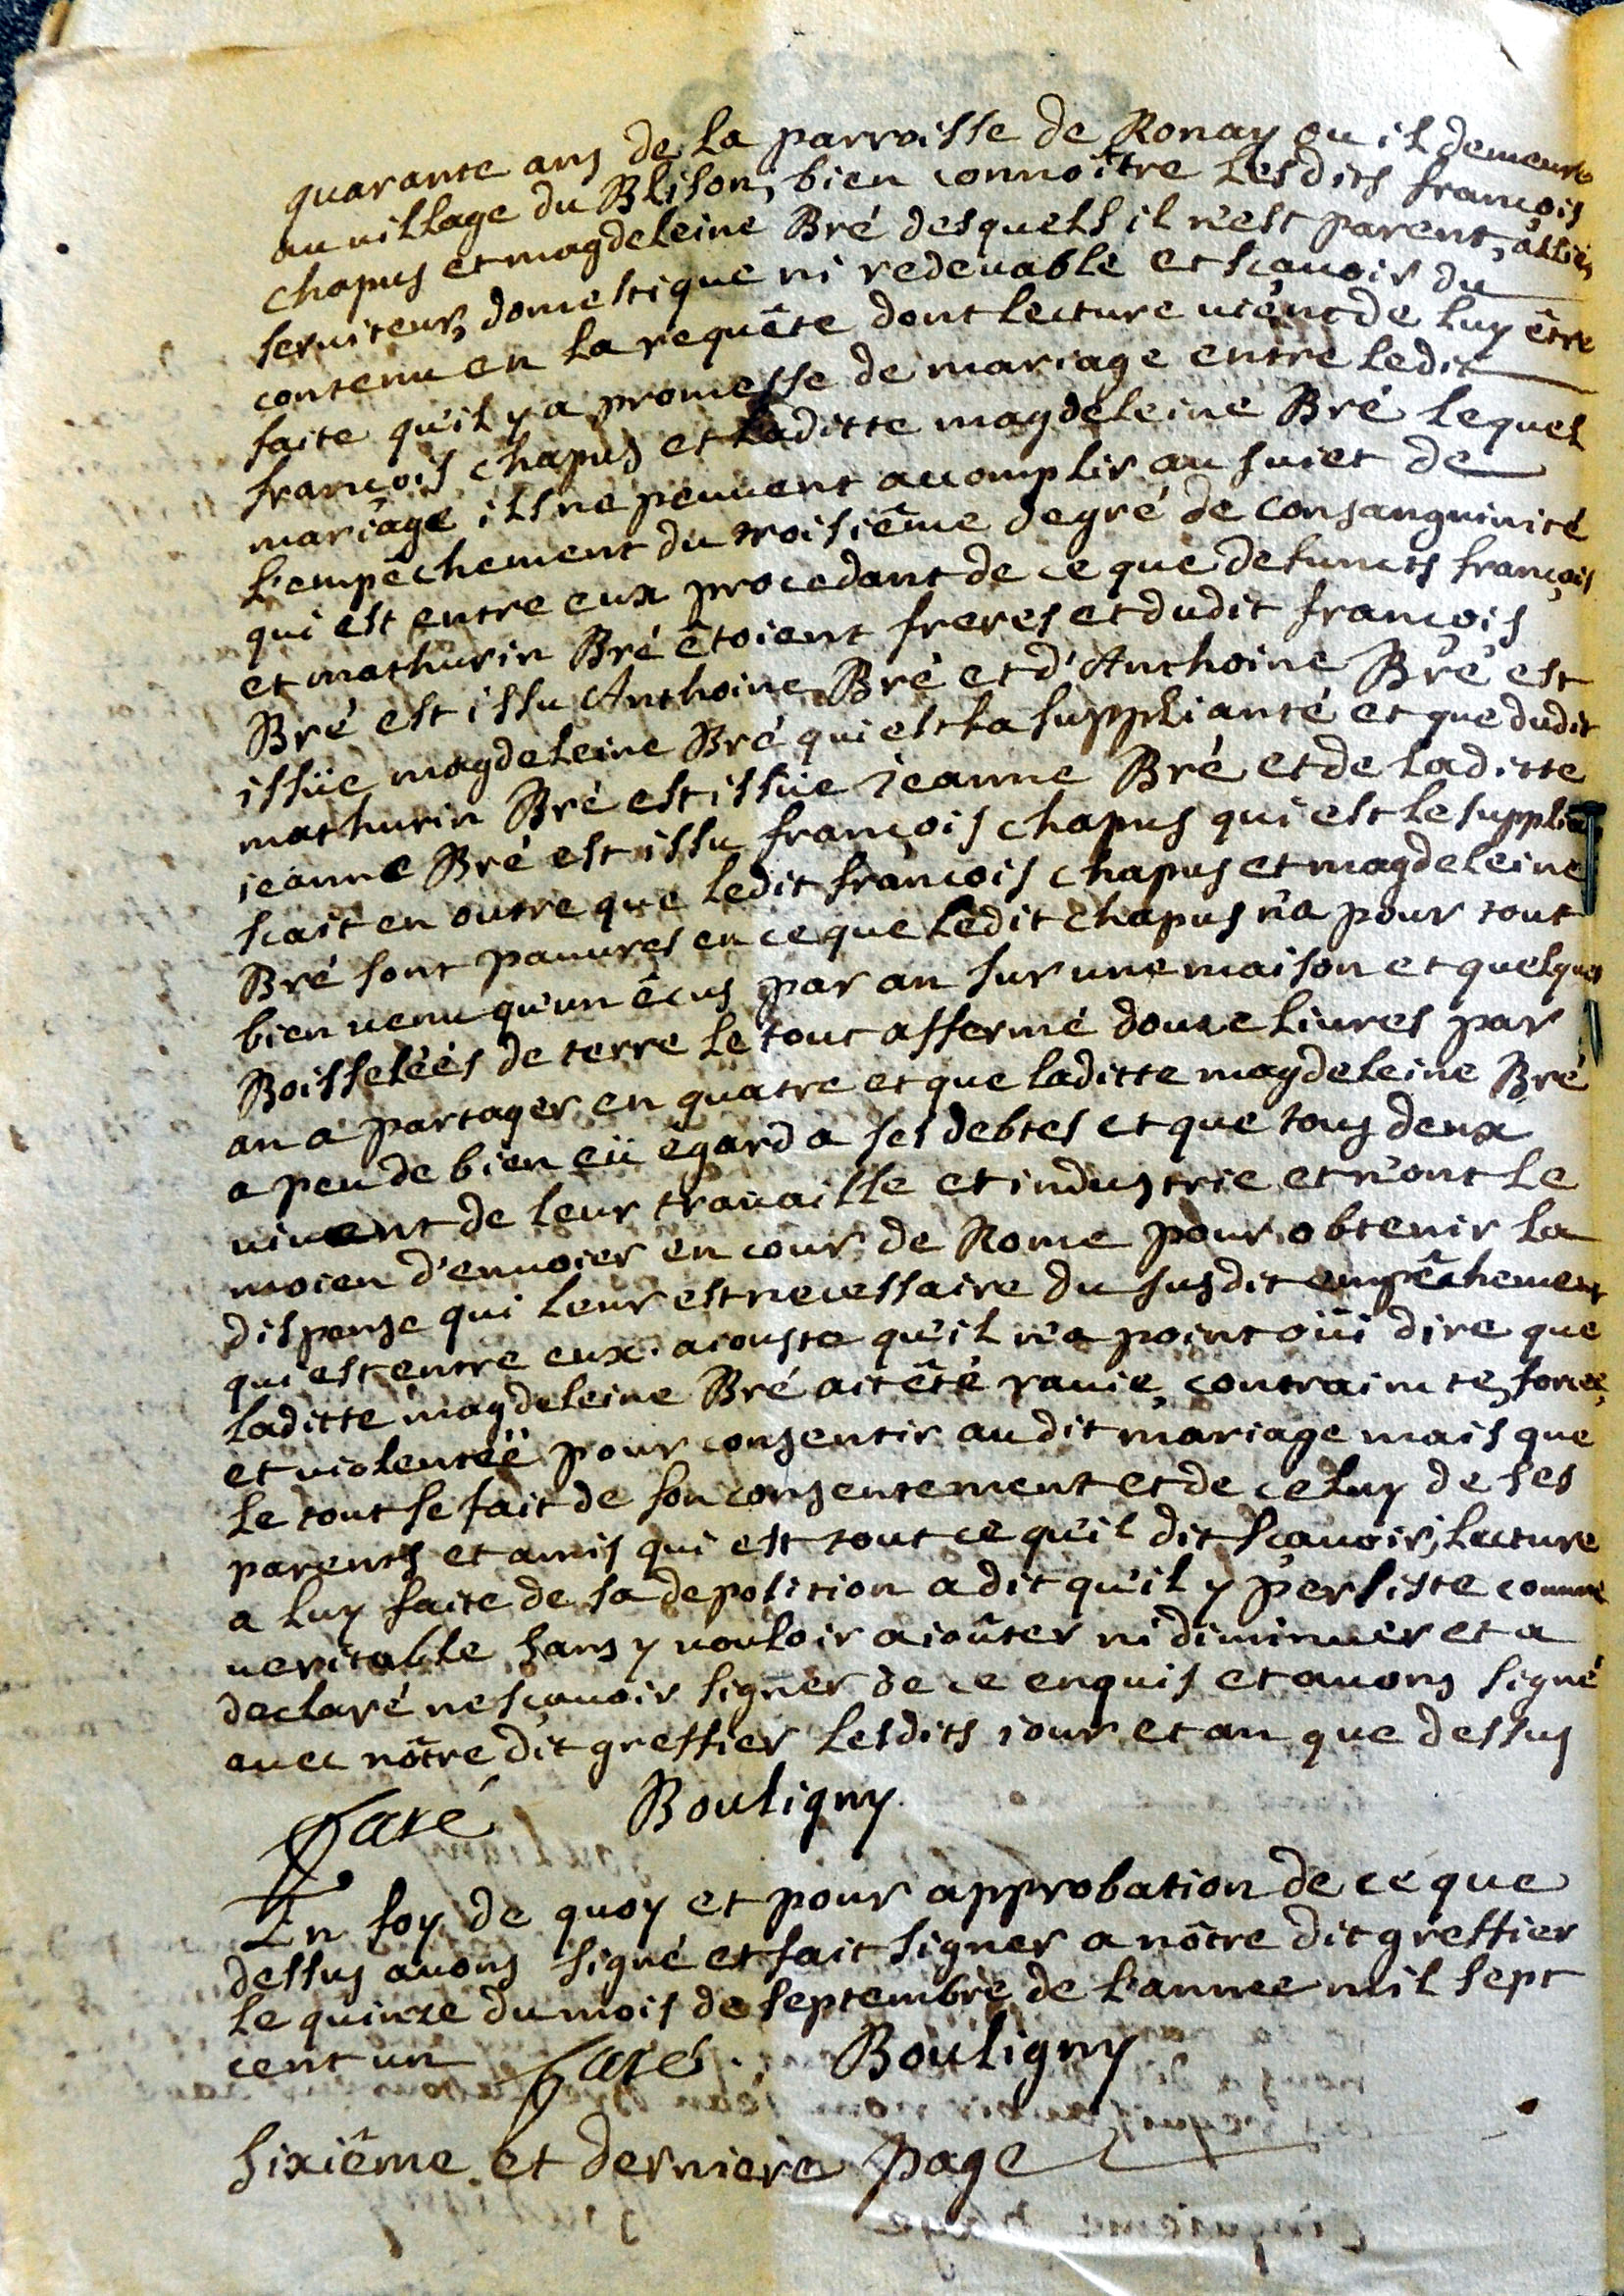 quarante ans de la parroisse de Ronay ou il demeure
au village du Blison, bien connoître lesdits françois
chapus et magdeleine Bré desquels il n'est parent, allié,
serviteur, domestique ni redevable et sçavoir du
contenu en la requête dont lecture vient de luy être
faite qu'il y a promesse de mariage entre ledit
françois chapus et laditte magdeleine Bré lequel
mariage ils ne peuvent accomplir au suiet de
l'empêchement du troisiême degré de consanguinité
qui est entre eux procedant de ce que defuncts françois
et mathurin Bré êtoient freres et dudit françois
Bré est issu Anthoine Bré et d'Anthoine Bré est
issüe magdeleine Bré qui est la suppliante et que dudit
mathurin Bré est issüe jeanne Bré et de laditte
jeanne Bré est issu françois chapus qui est le suppliant
scait en outre que ledit françois chapus et magdeleine
Bré sont pauvres en ce que ledit chapus n'a pour tout
bien venu qu'un êcus par an sur une maison et quelques
Boisselées de terre le tout affermé douze livres par
an a partager en quatre et que laditte magdeleine Bré
a peu de bien eü égard a ses debtes et que tous deux
vivent de leur travaille et industrie et n'ont le
moien d'envoier en cour de Rome pour obtenir la
dispense qui leur est necessaire du susdit empêchement
qui est entre eux. aiouste qu'il n'a point oüi dire que
laditte magdeleine Bré ait êté ravie, contrainte, forcée,
et violentéë pour consentir audit mariage mais que
le tout se fait de son consentement et de celuy de ses
parents et amis qui est tout ce qu'il dit sçavoir, lecture
a luy faite de sa deposition a dit qu'il y persiste comme
veritable sans y vouloir aioûter ni diminuer et a
declaré ne sçavoir signer de ce enquis et avons signé
avec nôtre dit greffier lesdits iour et an que dessus
Bouligny
En foy de quoy et pour approbation de ce que
dessus avons signé et fait signer a nôtre dit greffier
le quinze du mois de septembre de l'annee mil sept
cent un Bouligny
sixiême et derniere page